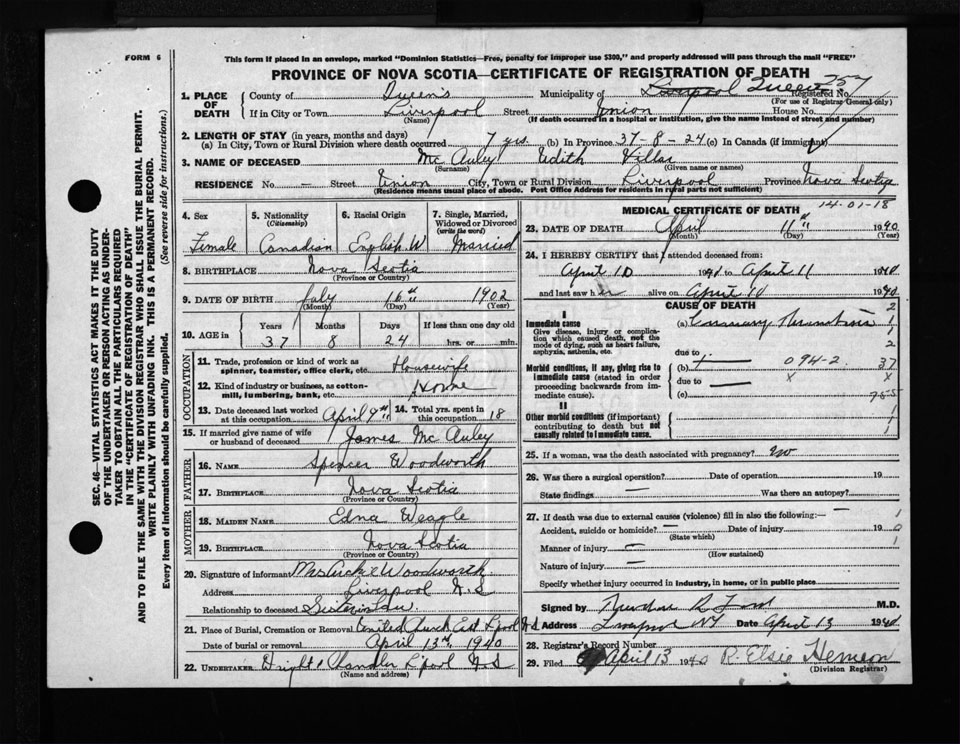 FORM 6
This form if placed in an envelope, marked "Dominion Statistics—Free, penalty for improper use $300," and properly addressed will pass through the mail "FREE"
PROVINCE OF NOVA SCOTIA—CERTIFICATE OF REGISTRATION OF DEATH
SEC. 46—VITAL STATISTICS ACT MAKES IT THE DUTY
OF THE UNDERTAKER OR PERSON ACTING AS UNDER-
TAKER TO OBTAIN ALL THE PARTICULARS REQUIRED
IN THE "CERTIFICATE OF REGISTRATION OF DEATH"
AND TO FILE THE SAME WITH THE DIVISION REGISTRAR WHO SHALL ISSUE THE BURIAL PERMIT.
WRITE PLAINLY WITH UNFADING INK. THIS IS A PERMANENT RECORD.
Every item of information should be carefully supplied. (See reverse side for instructions.)
1. PLACE OF DEATH
County of Queen's Municipality of Liverpool Queens Registered No. 757
(For use of Registrar General only)
If in City or Town Liverpool Street Union House No.
(Name) (If death occurred in a hospital or institution, give the name instead of street and number)
2. LENGTH OF STAY (in years, months and days)
(a) In City, Town or Rural Division where death occurred 7 yrs. (b) In Province 37-8-24 (c) In Canada (if immigrant)
3. NAME OF DECEASED Mc Auley Edith Villas
(Surname) (Given name or names)
RESIDENCE No. — Street Union City, Town or Rural Division Liverpool Province Nova Scotia
(Residence means usual place of abode. Post Office Address for Residents in rural parts not sufficient)
4. Sex 5. Nationality (Citizenship) 6. Racial Origin 7. Single, Married, Widowed or Divorced (write the word)
Female Canadian English W Married
8. BIRTHPLACE Nova Scotia
(Province or Country)
9. DATE OF BIRTH July 16th 1902
(Month) (Day) (Year)
10. AGE in Years Months Days If less than one day old
37 8 24 hrs. or min.
OCCUPATION
11. Trade, profession or kind of work as spinner, teamster, office clerk, etc. Housewife
12. Kind of industry or business, as cotton-mill, lumbering, bank, etc. Home
13. Date deceased last worked at this occupation April 9th 14. Total yrs. spent in this occupation 18
15. If married give name of wife or husband of deceased James Mc Auley
FATHER
16. NAME Spencer Woodworth
17. BIRTHPLACE Nova Scotia
(Province or Country)
MOTHER
18. MAIDEN NAME Edna Weagle
19. BIRTHPLACE Nova Scotia
(Province or Country)
20. Signature of informant Mrs Woodworth
Address Liverpool N.S
Relationship to deceased Sister in law.
21. Place of Burial, Cremation or Removal United Church Cem L'pool N.S
Date of burial or removal April 13th 1940
22. UNDERTAKER Chandler L'pool N.S
(Name and address)
MEDICAL CERTIFICATE OF DEATH
14-01-18
23. DATE OF DEATH April 11th 1940
(Month) (Day) (Year)
24. I HEREBY CERTIFY that I attended deceased from:
April 10 1940 to April 11 1940
and last saw her alive on April 10 1940
CAUSE OF DEATH
I
Immediate cause
Give disease, injury or complication which caused death, not the mode of dying, such as heart failure, asphyxia, asthenia, etc.
(a) Coronary Thrombosis
due to
Morbid conditions, if any, giving rise to immediate cause (stated in order proceeding backwards from immediate cause).
(b) 094-2 37
due to x x
(c)
II
Other morbid conditions (if important) contributing to death but not causally related to immediate cause.
25. If a woman, was the death associated with pregnancy? no
26. Was there a surgical operation? — Date of operation 19
State findings — Was there an autopsy?
27. If death was due to external causes (violence) fill in also the following:—
Accident, suicide or homicide? — Date of injury 19
(State which)
Manner of injury —
(How sustained)
Nature of injury —
Specify whether injury occurred in industry, in home, or in public place
Signed by M.D.
Address Liverpool NS Date April 13 1940
28. Registrar's Record Number
29. Filed April 13 1940 R. Elsie Hemeon
(Division Registrar)